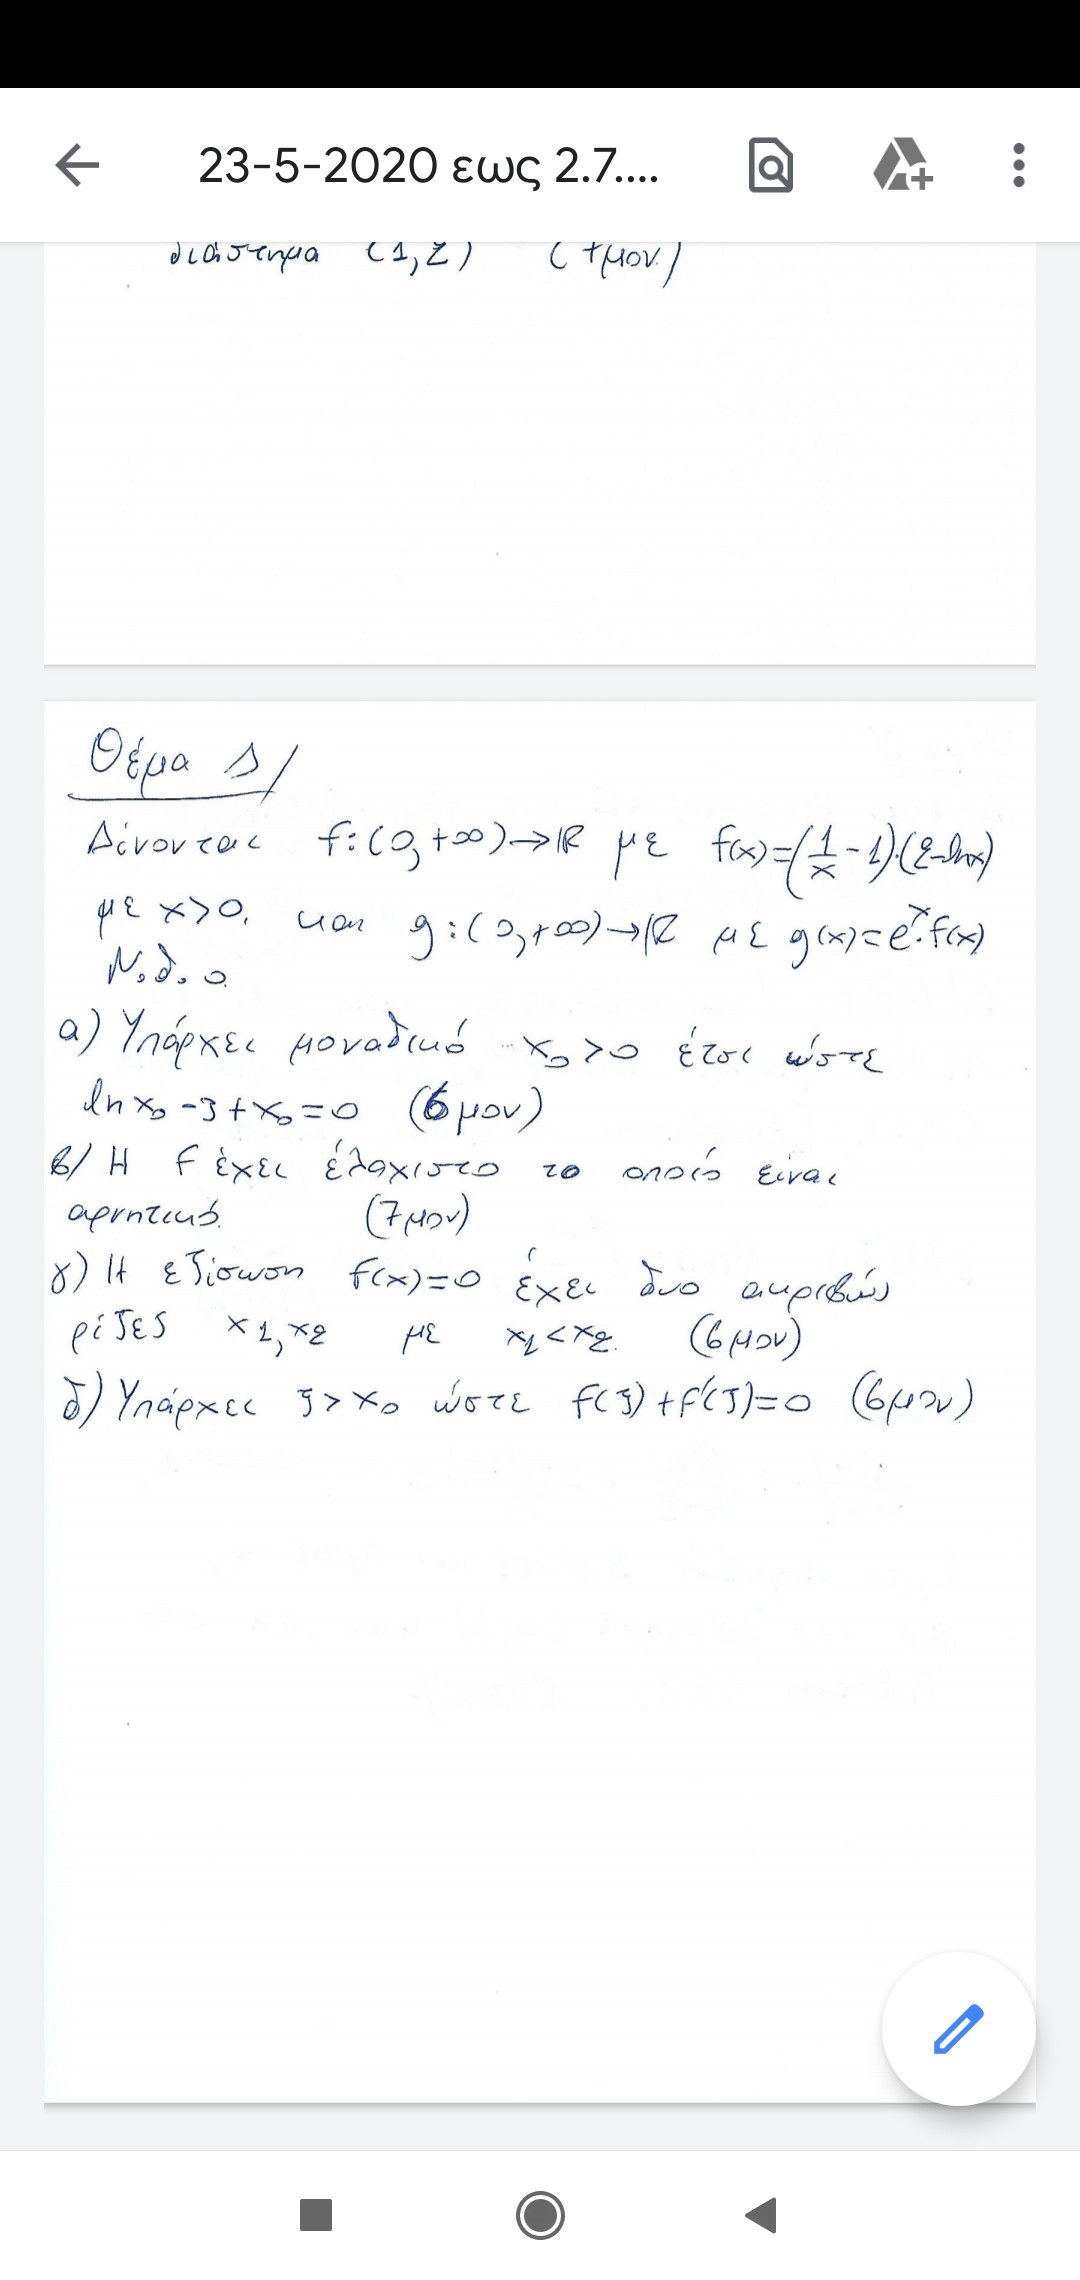 23-5-2020 εως 2.7....
διάστημα (1,2) (7μον)
Θέμα Δ/
Δίνονται f:(0,+∞)→ℝ με f(x)=(1/x-1)·(2-lnx)
με x>0. και g:(0,+∞)→ℝ με g(x)=eˣ·f(x)
Ν.δ.ο
α) Υπάρχει μοναδικό x₀>0 έτσι ώστε
lnx₀-3+x₀=0 (6μον)
β/ Η f έχει ελάχιστο το οποίο είναι
αρνητικό. (7μον)
γ) Η εξίσωση f(x)=0 έχει δυο ακριβώς
ρίζες x1,x2 με x1<x2. (6μον)
δ) Υπάρχει ξ>x₀ ώστε f(ξ)+f'(ξ)=0 (6μον)